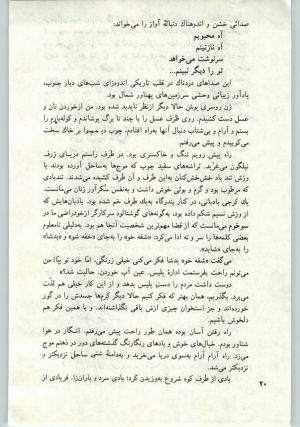 صدائی خشن و اندوهناک دنبالهٔ آواز را می‌خواند:
آه محبوبم
آه نازنینم
سرنوشت می‌خواهد
تو را دیگر نبینم...
این صداهای دردناک در قلب تاریکی اندوه‌زای شب‌های دیار جنوب،
یادآور زیبائی وحشی سرزمین‌های پهناور شمال بود.
زن روسری پوش حالا دیگر ازنظر ناپدید شده بود. من ازخوردن نان و
عسل دست کشیدم. روی ظرف عسل را با چند تا برگ پوشاندم و کوله‌بارم را
بستم و آرام و بی‌شتاب دنبال آنها به‌راه افتادم. چوب دستم را بر خاک سخت
می‌کوبیدم و پیش می‌رفتم.
راه پیش رویم تنگ و خاکستری بود. در طرف راستم دریای ژرف
نیلگون می‌غرید. تراشه‌های سفید چوب که موج‌ها به‌ساحل آورده بودند با
وزش تند باد خش‌خش‌کنان به‌این طرف و آن طرف کشیده می‌شدند. تندبادی
که مرطوب بود و گرم و بوئی خوش داشت و به‌نفس سکرآور زنان می‌مانست.
یک کرجی بادبانی، در کنار بندرگاه به‌یک طرف خم شده بود. با بادبان‌هایش که
از وزش نسیم شکم داده بود، به‌گونه‌های گوشتالود سرکارگر ازخودراضی ما در
سوخوم می‌مانست که از قضا مهم‌ترین شخصیت آنجا هم بود. به‌دلیلی نامعلوم
بعضی کلمه‌ها را سر و ته ادا می‌کرد: «شفه خو» را به‌جای «خفه شو» و «بدشا»
را به‌جای «شاید».
می‌گفت «شفه خو، بدشا فکر می‌کنی خیلی زرنگی، اما خود تو بپا! من
می‌تونم راحت بفرستمت ادارهٔ پلیس. عین آب خوردن. حالیت شد؟»
دوست داشت مردم را دستِ پلیس بدهد و از این کار خیلی هم لذت
می‌برد. بگذریم. همان بهتر که فکر کنیم حالا دیگر کِرم‌ها جسدش را در گور
خورده‌اند و جز استخوان چیزی ازش باقی نگذاشته‌اند. و با همین فکر هم
دلخوش باشیم.
راه رفتن آسان بود، همان طور راحت پیش می‌رفتم. انگار در هوا
شناور بودم. خیال‌های خوش و یادهای رنگارنگ گذشته‌های دور در ذهنم موج
می‌زد. راه آرام آرام به‌سوی دریا می‌خزید و به‌دامنهٔ شنی ساحل نزدیکتر و
نزدیکتر می‌شد.
بادی از طرف کوه شروع به‌وزیدن کرد؛ بادی سرد و باران‌زا. فریادی از
۲۰